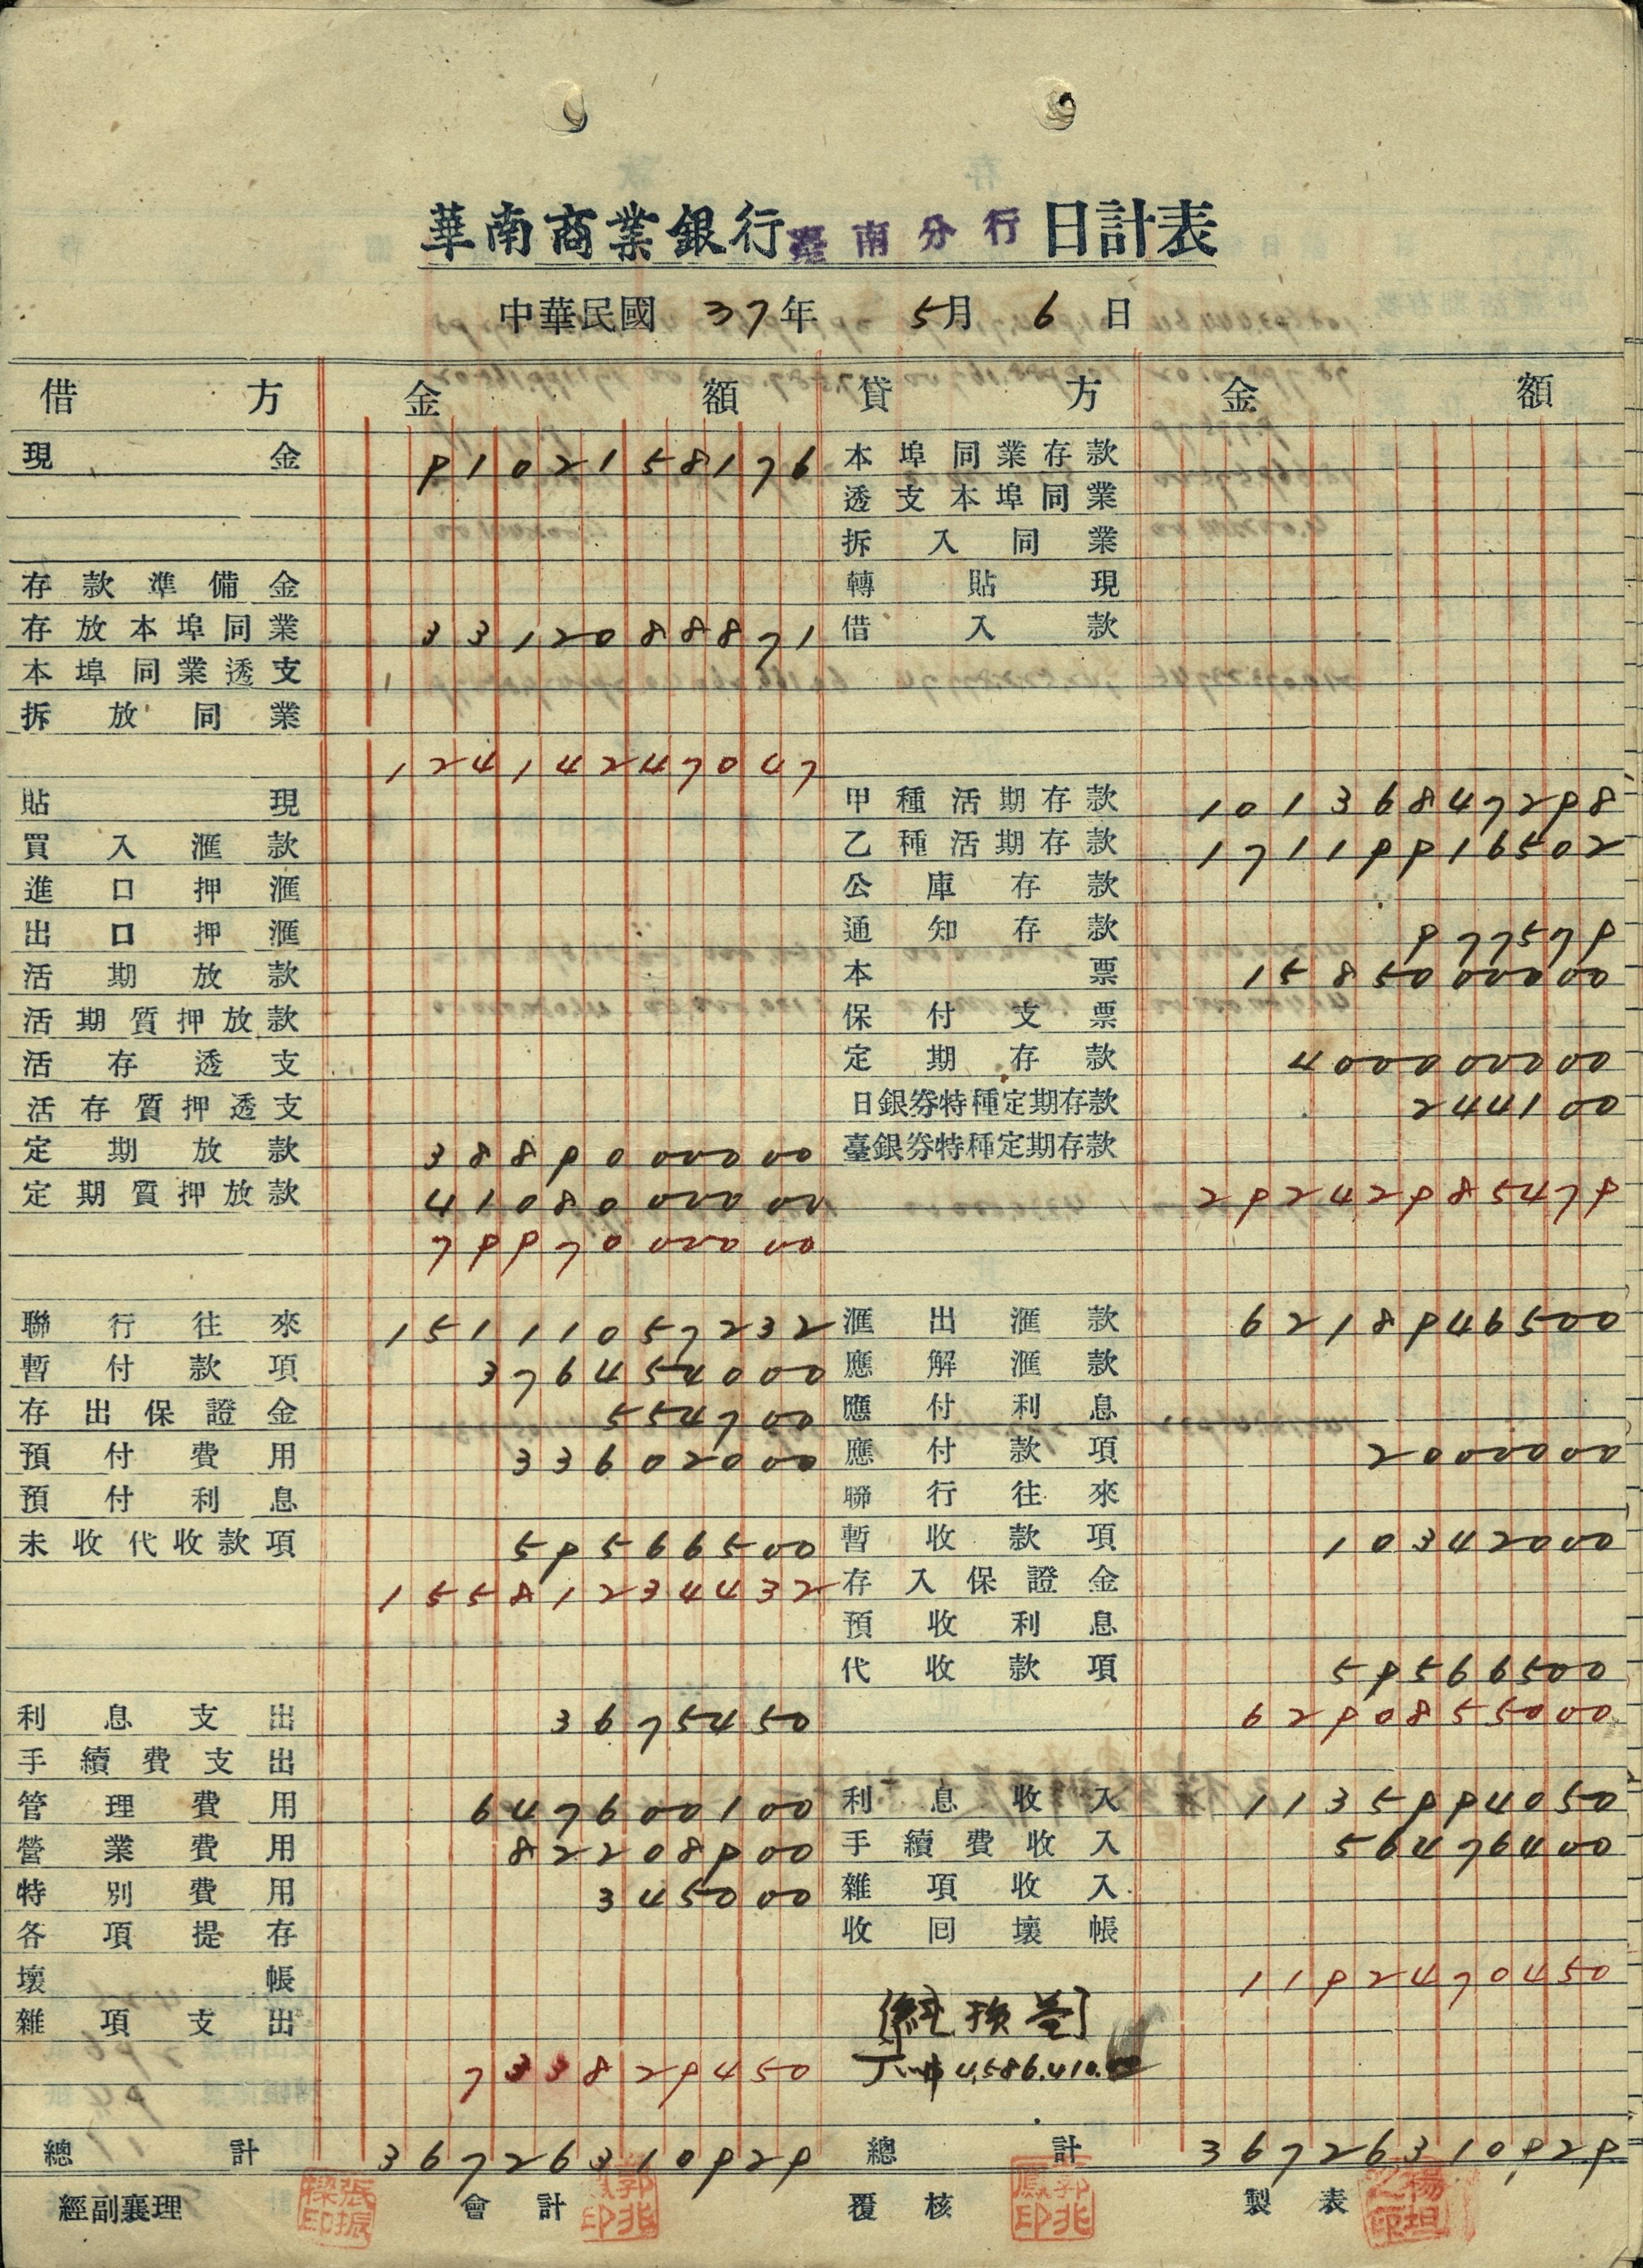 華南商業銀行臺南分行日計表
中華民國 37年 5月 6日
借方 金額 貸方 金額
現金 9102158176 本埠同業存款
透支本埠同業
拆入同業
存款準備金 轉貼現
存放本埠同業 3312088871 借入款
本埠同業透支
拆放同業
12414247047
貼現 甲種活期存款 10136847298
買入滙款 乙種活期存款 17119916502
進口押滙 公庫存款
出口押滙 通知存款 977579
活期放款 本票 1585000000
活期質押放款 保付支票
活存透支 定期存款 400000000
活存質押透支 日銀券特種定期存款 244100
定期放款 3889000000 臺銀券特種定期存款
定期質押放款 4108000000 29242985479
7997000000
聯行往來 15111057232 滙出滙款 6218946500
暫付款項 376454000 應解滙款
存出保證金 554700 應付利息
預付費用 33602000 應付款項 2000000
預付利息 聯行往來
未收代收款項 59566500 暫收款項 10342000
15581234432 存入保證金
預收利息
代收款項 59566500
利息支出 3675450 6290855000
手續費支出
管理費用 647600100 利息收入 1135994050
營業費用 82208900 手續費收入 56476400
特別費用 345000 雜項收入
各項提存 收囘壞帳
壞帳 1192470450
雜項支出 純損益
733829450 4,586,410.00
總計 36726310929 總計 36726310929
經副襄理 張振樑印 會計 郭兆鳳印 覆核 郭兆鳳印 製表 楊坦之印